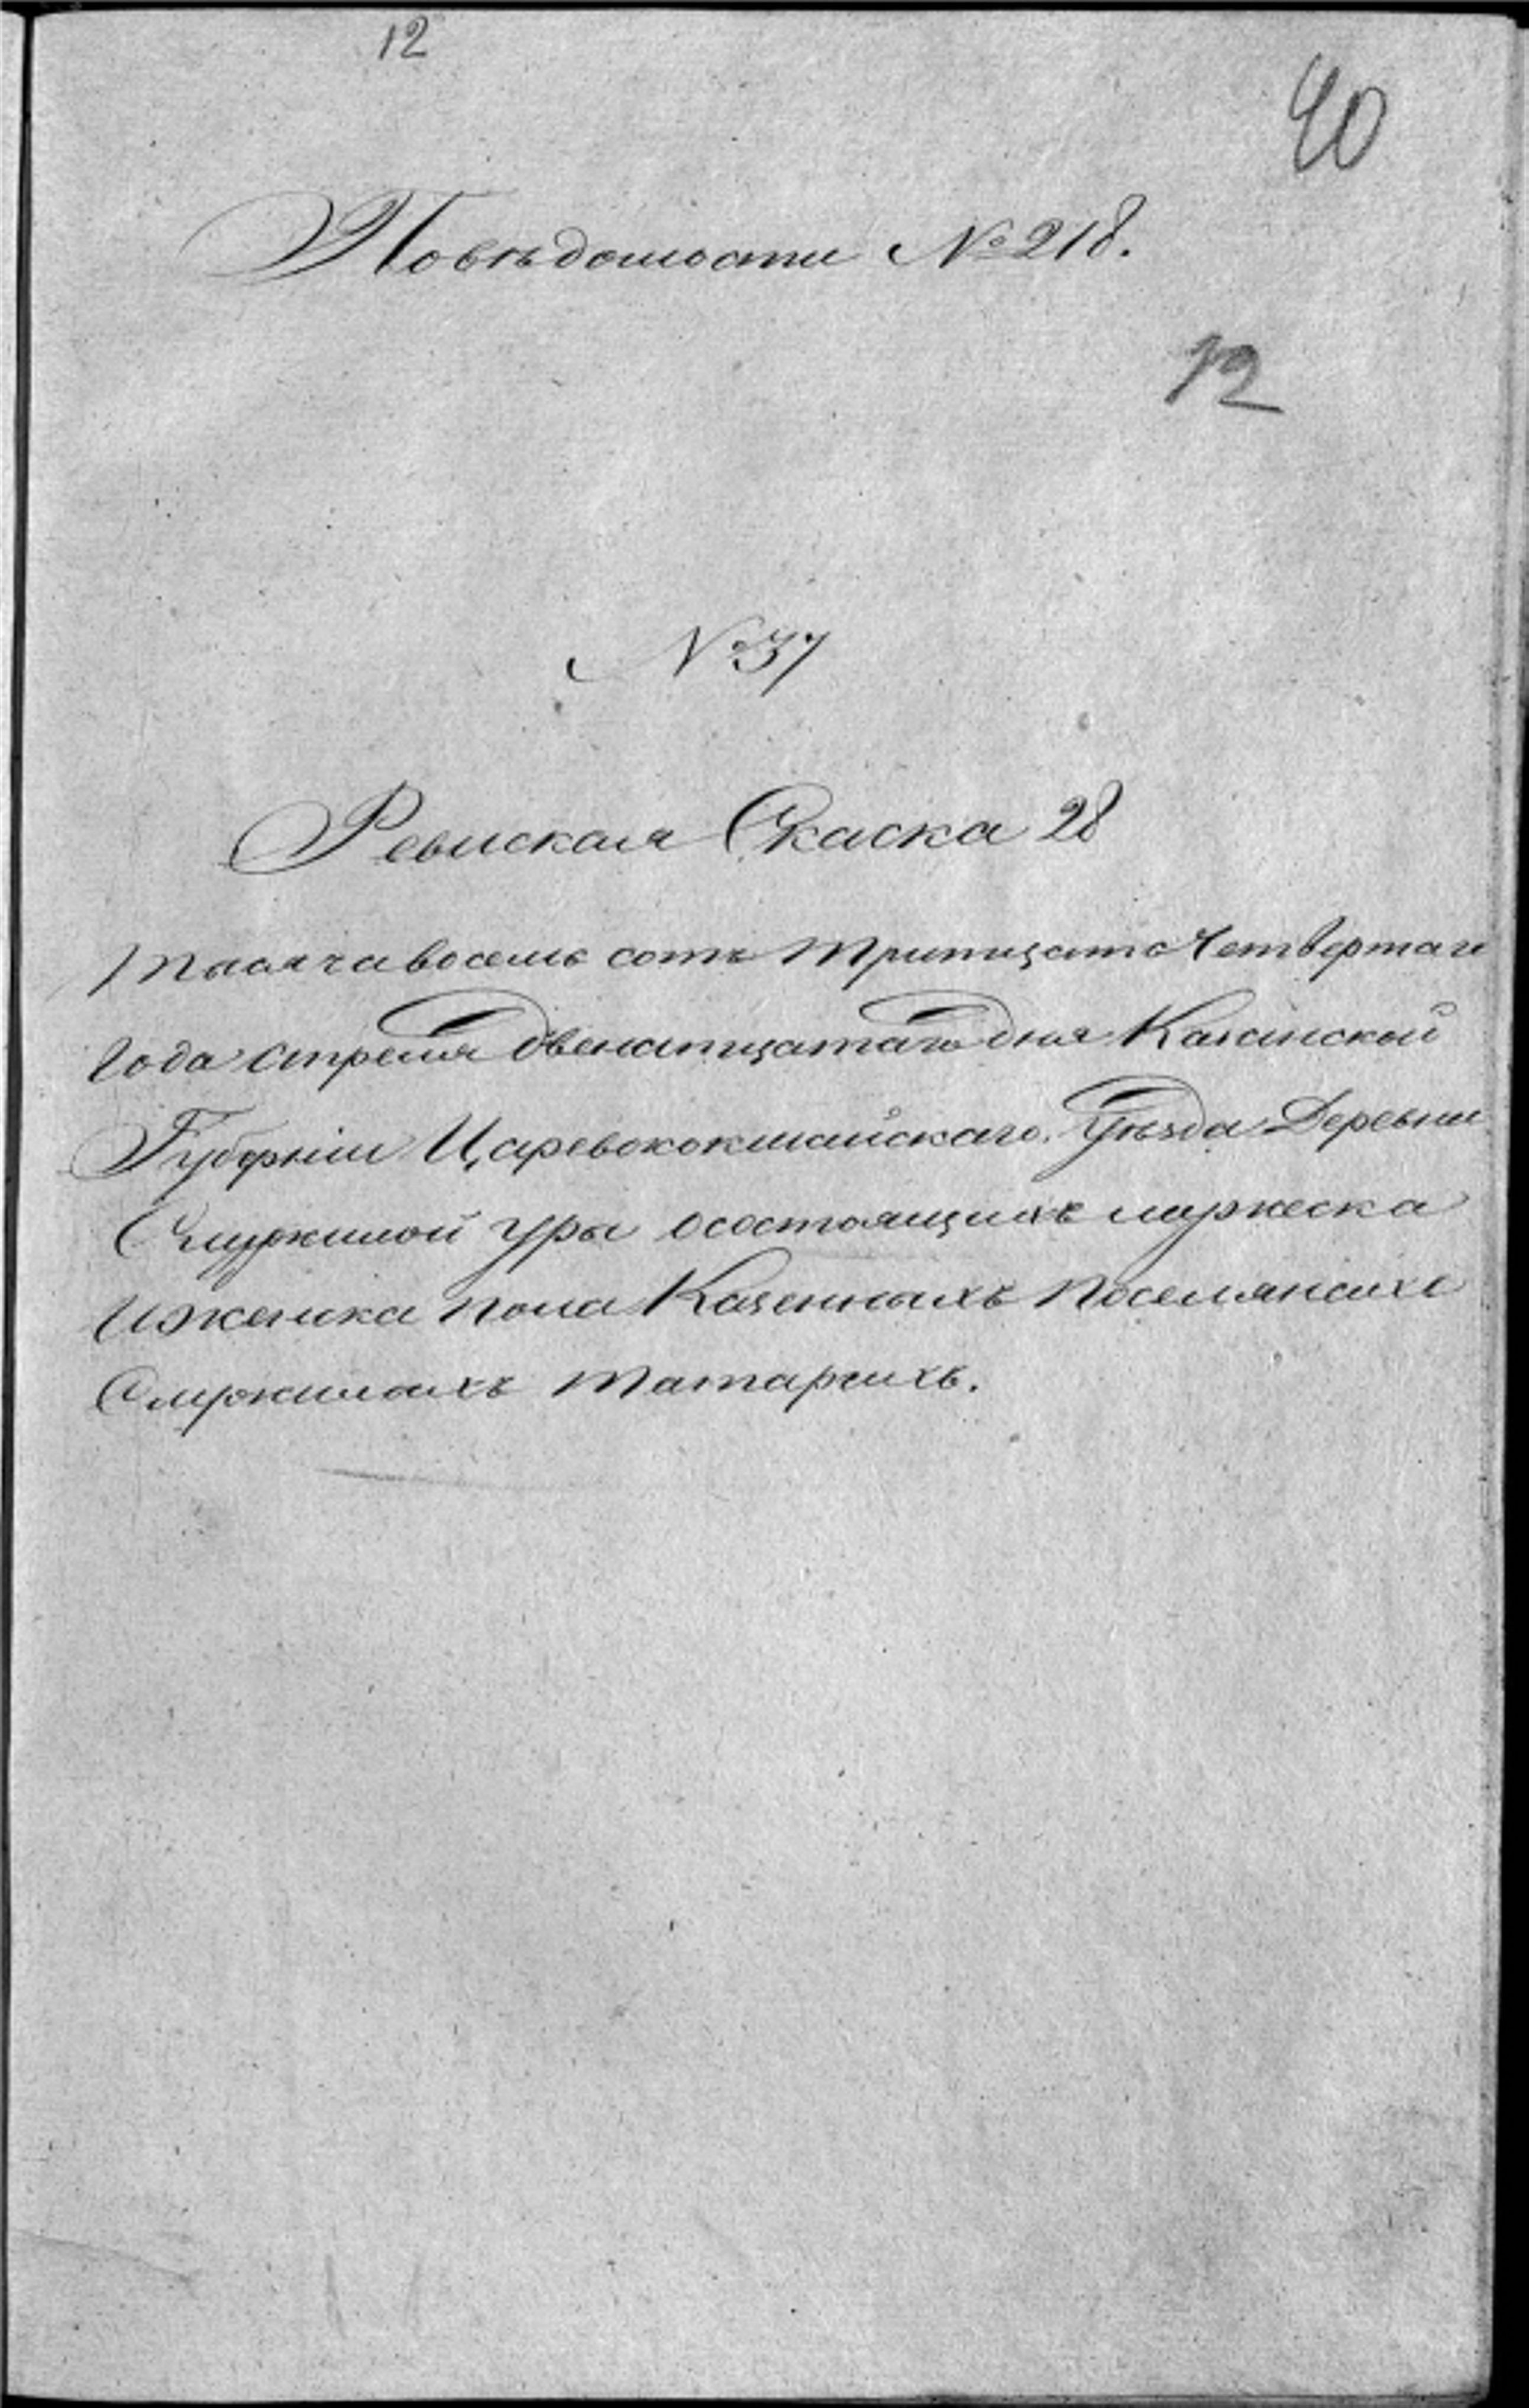 12
40
Повѣдомости № 218.
12
№ 37
Ревиская Скаска 28
тысяча восемь сотъ тритцать Четвертаго
года апреля двенатцатаго дня Казанской
Губерніи Царевококшайскаго Уѣзда Деревни
Служилой Уры осостоящихъ мужеска
ИЖенска пола Казенныхъ поселянахъ
Служилыхъ татарехъ.